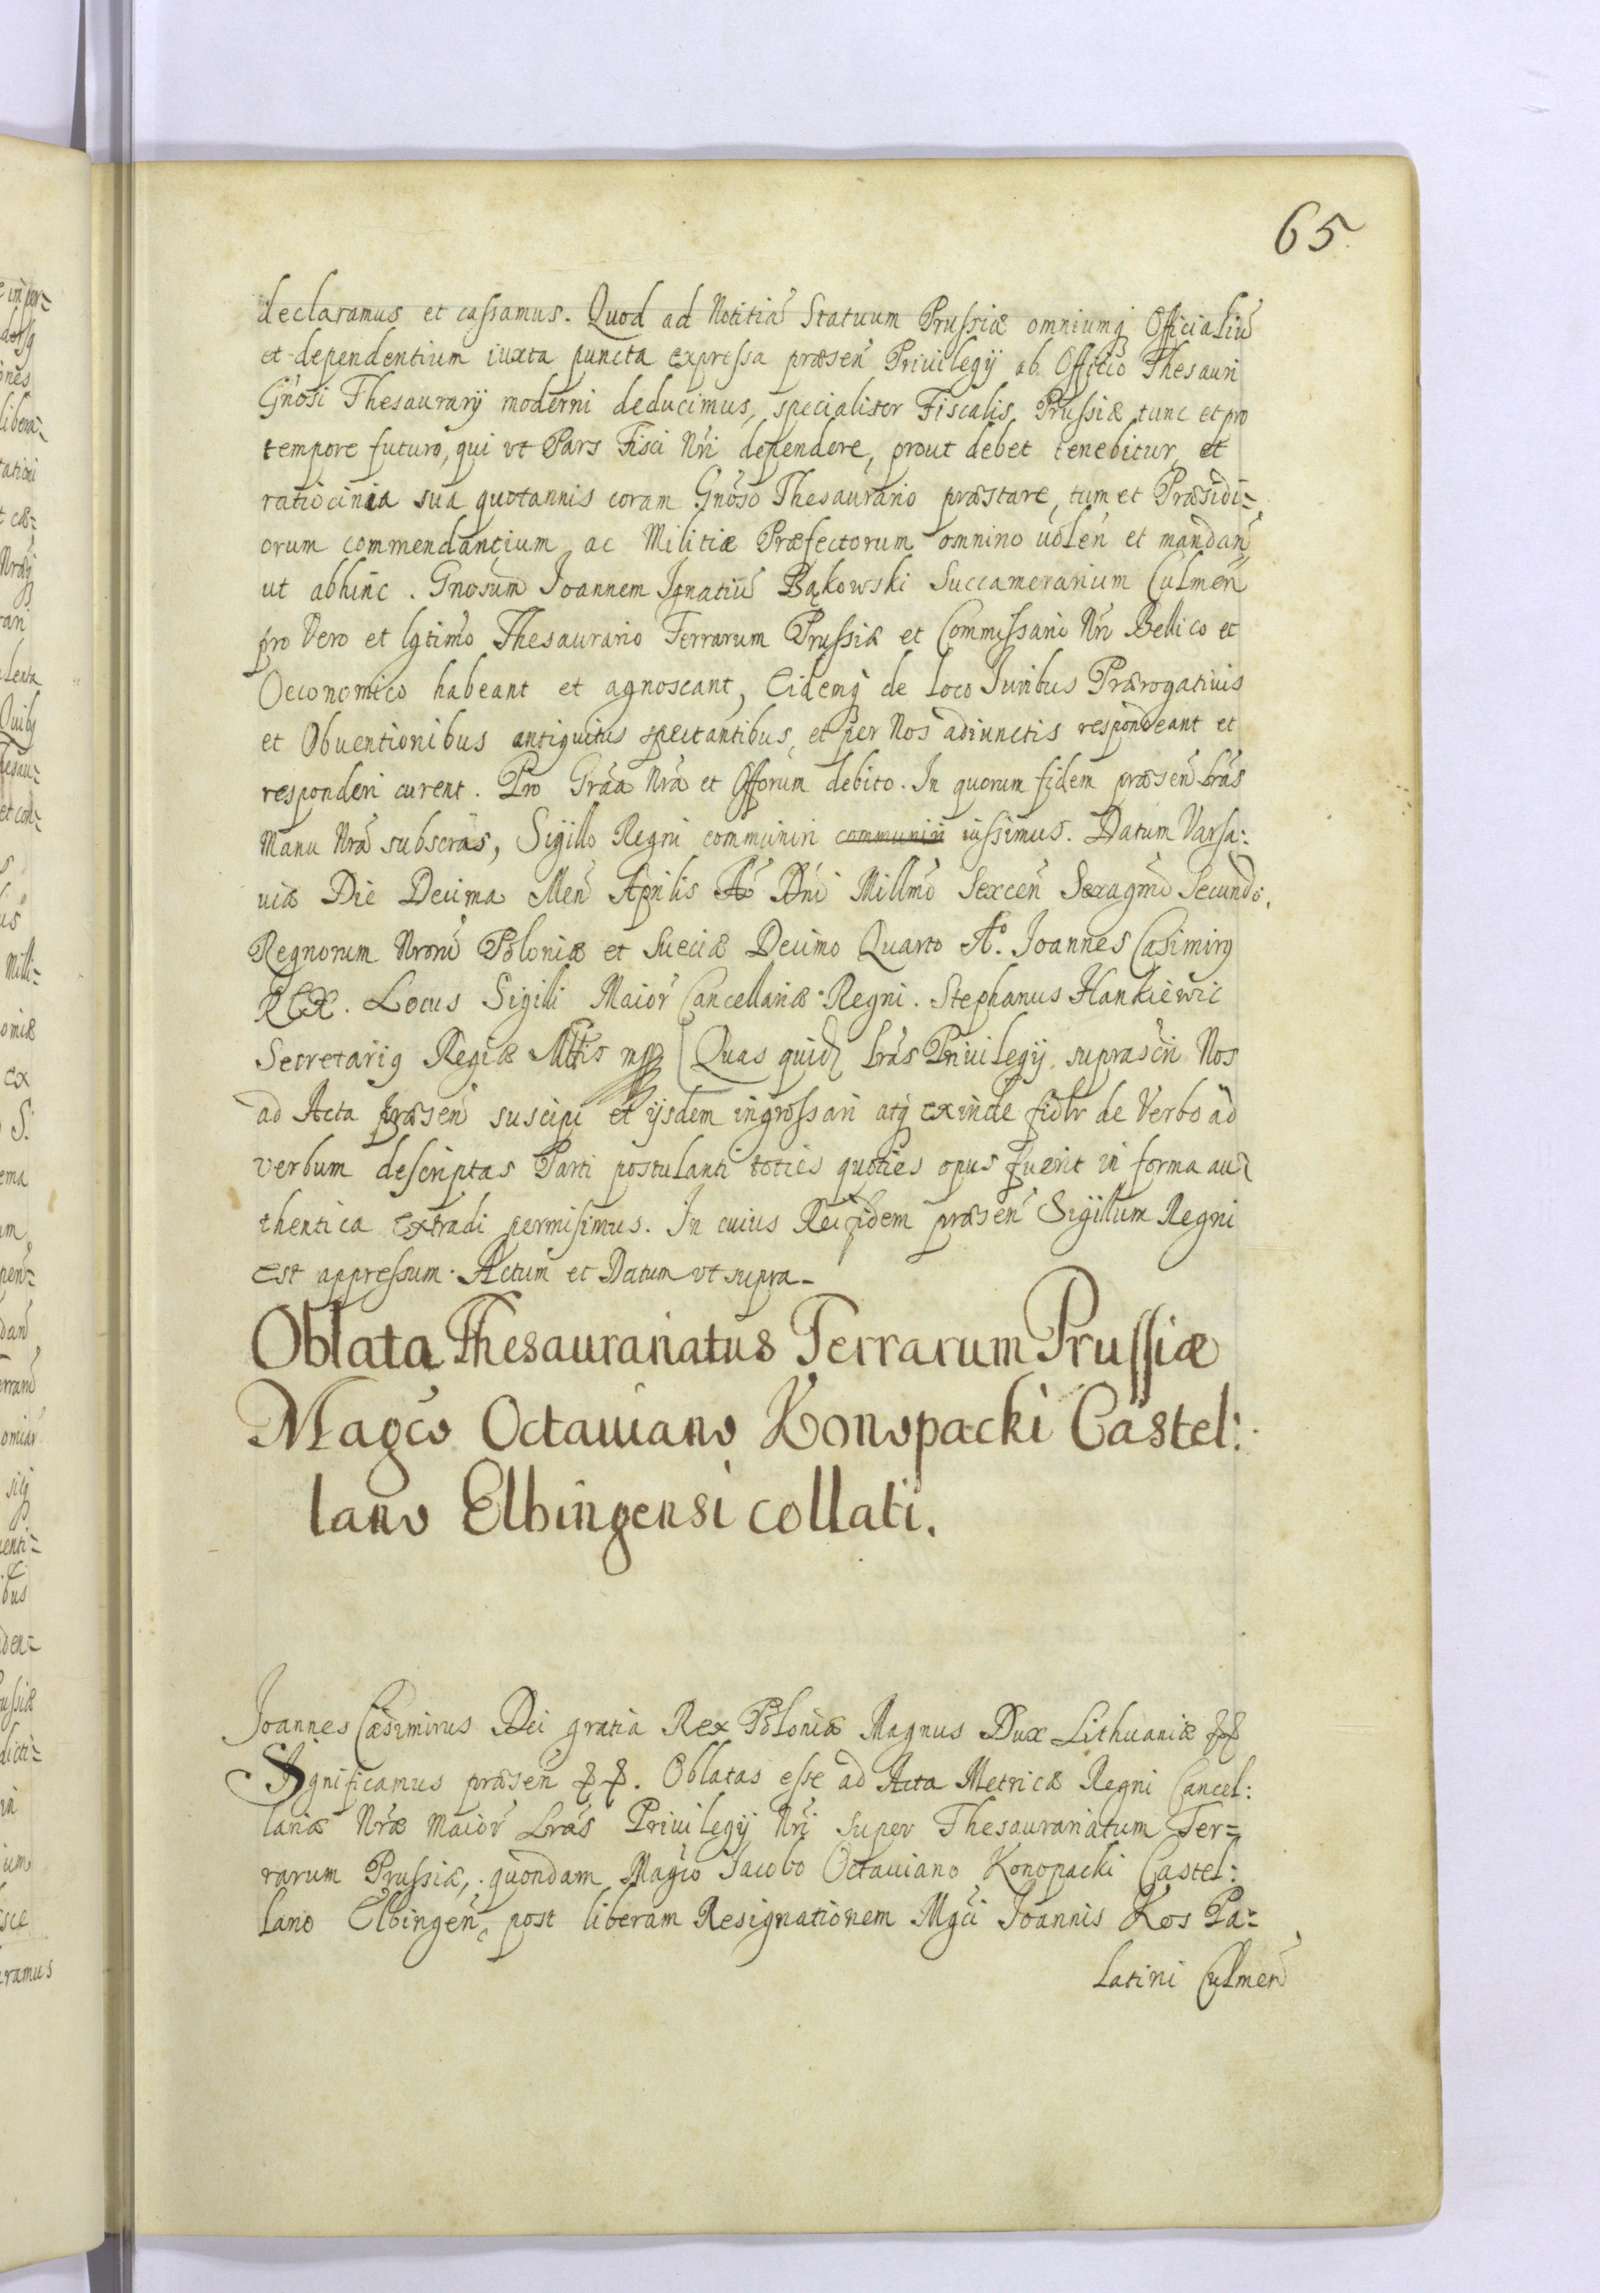 65
declaramus et cassamus. Quod ad Notitiã Statuum Prussiæ omniumq Officialiũ
et dependentium iuxta puncta expressa præseñ Priuilegij ab Officio Thesauri
Gñosi Thesaurarij moderni deducimus, specialiter Fiscalis Prussiæ tunc et pro
tempore futuro, qui vt Pars Fisci Nri dependere, prout debet tenebitur, et
ratiocinia sua quotannis coram Gñoso Thesaurario præstare, tum et Præsidi=
orum commendantium ac Militiæ Præfectorum omnino uoleñ et mandañ
ut abhinc. Gnosum Joannem Jgnatiũ Bąkowski Succamerarium Culmeñ
pro Vero et lgtimo Thesaurario Terrarum Prussiæ et Commissario Nri Bellico et
Oeconomico habeant et agnoscant, Eidemq de loco Juribus Prærogatiuis
et Obuentionibus antiquitus spectantibus, et per Nos adiunctis respondeant et
responderi curent. Pro Grãa Nrã et Offorum debito. In quorum fidem præseñ Lrãs
Manu Nrã subscrãs, Sigillo Regni communiri communiri iussimus. Datum Varsa:
uiæ Die Decima Meñ Aprilis Aõ Dñi Millmõ Sexceñ Sexagmõ Secundo.
Regnorum Nrorũ Poloniæ et Sueciæ Decimo Quarto Aº. Joannes Casimirq
REX. Locus Sigilli Maior Cancellariæ Regni. Stephanus Hankiewic
Secretariq Regiæ Mttis mp Quas quid Lrãs Priuilegij suprascri Nos
ad Acta præseñ suscipi et ijsdem ingrossari atq exinde fidlr de Verbo ad
verbum descriptas Parti postulanti toties quoties opus fuerit in forma au
thentica extradi permisimus. In cuius Rei fidem præseñ Sigillum Regni
est appressum. Actum et Datum vt supra.
Oblata Thesaurariatus Terrarum Prussiæ
Magco Octauiano Konopacki Castel:
lano Elbingensi collati.
Joannes Casimirus Dei gratia Rex Poloniæ Magnus Dux Lithuaniæ
Significamus præseñ. Oblatas esse ad Acta Metricæ Regni Cancel:
lariæ Nræ Maior Lrãs Priuilegij Nri super Thesaurariatum Ter=
rarum Prussiæ, quondam Magco Jacobo Octauiano Konopacki Castel:
lano Elbingeñ, post liberam Resignationem Mgci Joannis Kos Pa=
latini Culmeñ